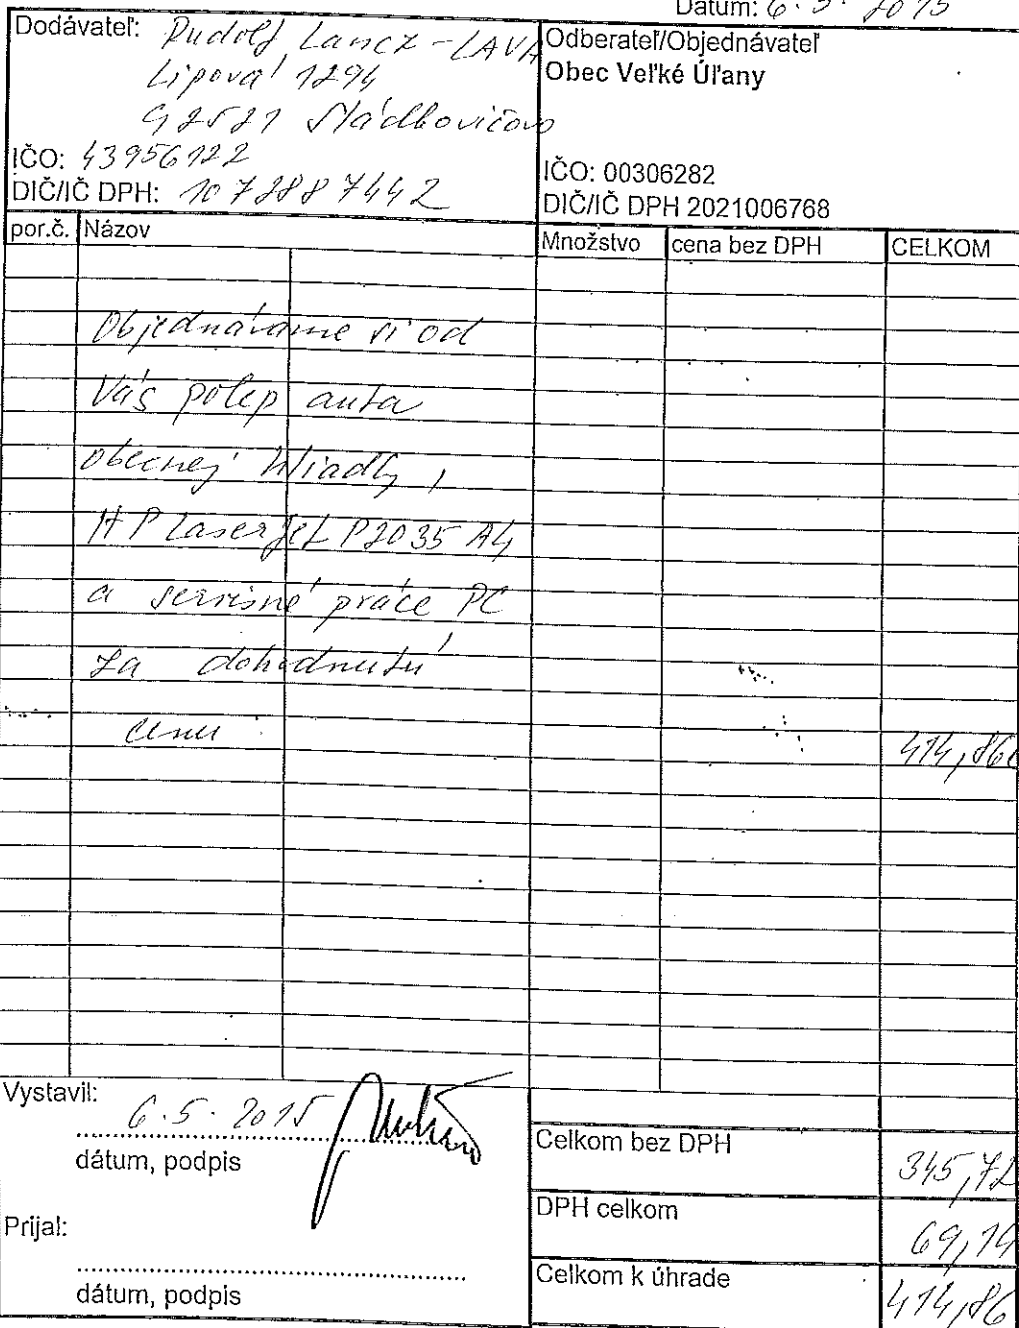 Dátum: 6. 5. 2015
Dodávateľ: Rudolf Lancz - LAVA
Lipová 1294
92521 Sládkovičovo
IČO: 43956122
DIČ/IČ DPH: 1072887442
Odberateľ/Objednávateľ
Obec Veľké Úľany
IČO: 00306282
DIČ/IČ DPH 2021006768
por.č. Názov Množstvo cena bez DPH CELKOM
Objednávame si od
Vás polep auta
obecnej hliadky,
HP LaserJet P2035 A4
a servisné práce PC
za dohodnutú
cenu 414,86
Vystavil: 6.5. 2015
dátum, podpis
Prijal:
dátum, podpis
Celkom bez DPH 345,72
DPH celkom 69,14
Celkom k úhrade 414,86